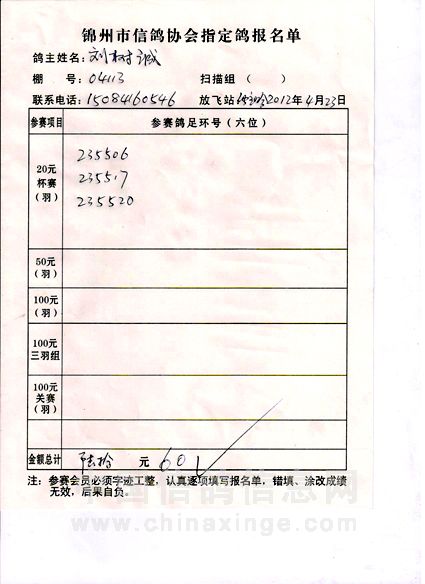 锦州市信鸽协会指定鸽报名单
鸽主姓名：刘树诚
棚 号：04113 扫描组（ ）
联系电话：15084160546 放飞站 2012年4月23日
参赛项目 参赛鸽足环号（六位）
20元
杯赛
（羽）
235506
235517
235520
50元
（羽）
100元
（羽）
100元
三羽组
100元
关赛
（羽）
金额总计 陆拾 元 60
注：参赛会员必须字迹工整，认真逐项填写报名单，错填、涂改成绩
无效，后果自负。
中国信鸽信息网
www.chinaxinge.com